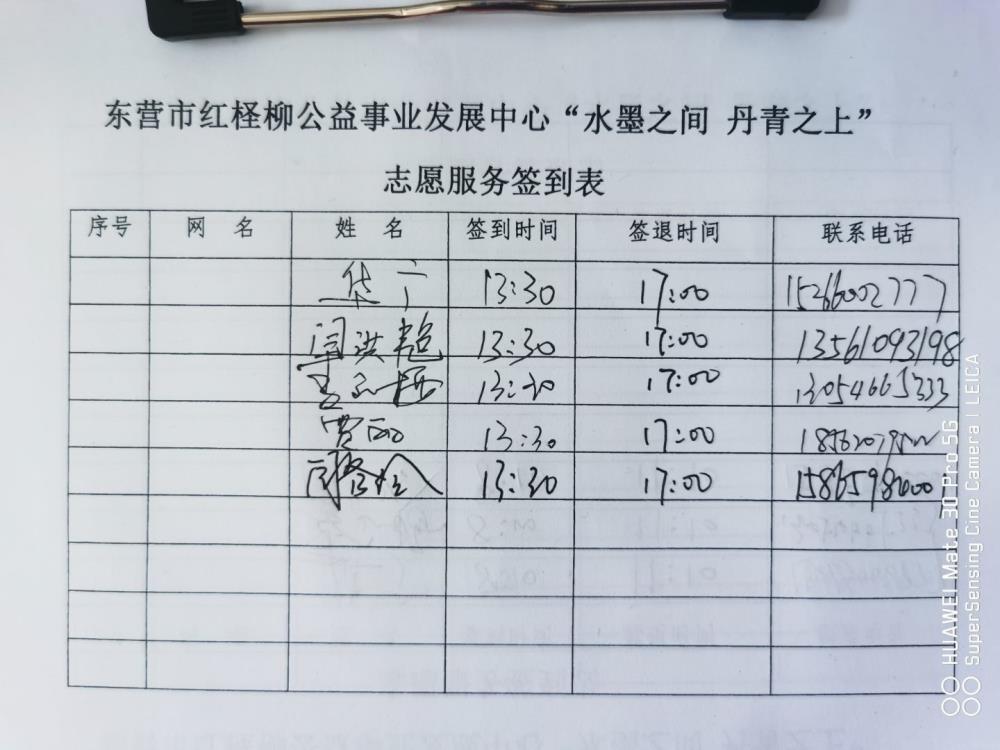 东营市红柽柳公益事业发展中心“水墨之间 丹青之上”
志愿服务签到表
序号 网 名 姓 名 签到时间 签退时间 联系电话
13:30 17:00 15266002777
闫洪韬 13:30 17:00 13561093198
13:30 17:00 13054665333
贾丽 13:30 17:00
13:30 17:00
HUAWEI Mate 30 Pro 5G
SuperSensing Cine Camera | LEICA